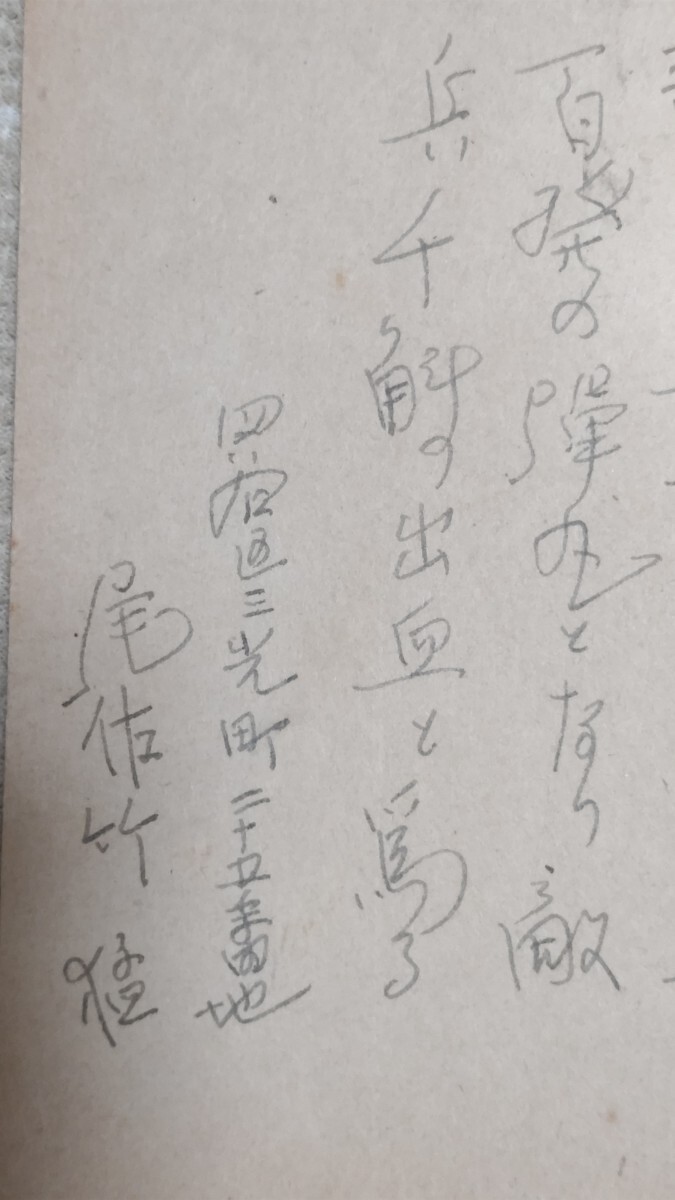 百発の彈丸となり敵
兵千斛の出血と為る
四谷区三光町二十五番地
尾佐竹猛